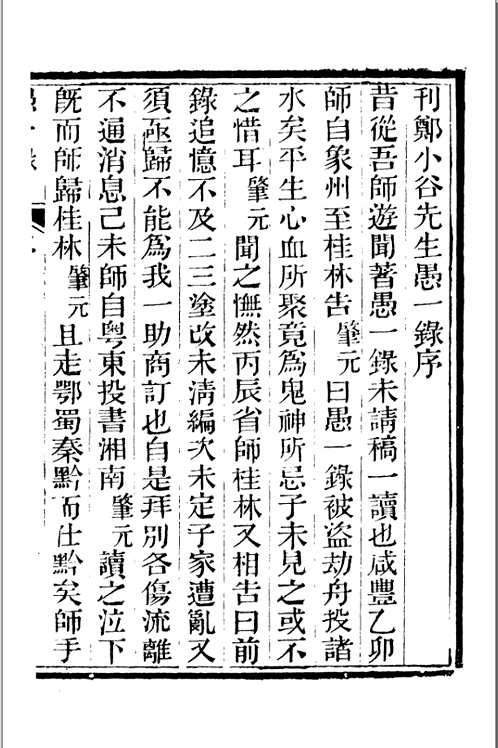 刊鄭小谷先生愚一錄序
昔從吾師遊聞著愚一錄未請稿一讀也咸豐乙卯
師自象州至桂林告肇元曰愚一錄被盜劫舟投諸
水矣平生心血所聚竟爲鬼神所忌子未見之或不
之惜耳肇元聞之憮然丙辰省師桂林又相告曰前
錄追憶不及二三塗改未淸編次未定子家遭亂又
須亟歸不能爲我一助商訂也自是拜別各傷流離
不通消息己未師自粵東投書湘南肇元讀之泣下
旣而師歸桂林肇元且走鄂蜀秦黔而仕黔矣師手